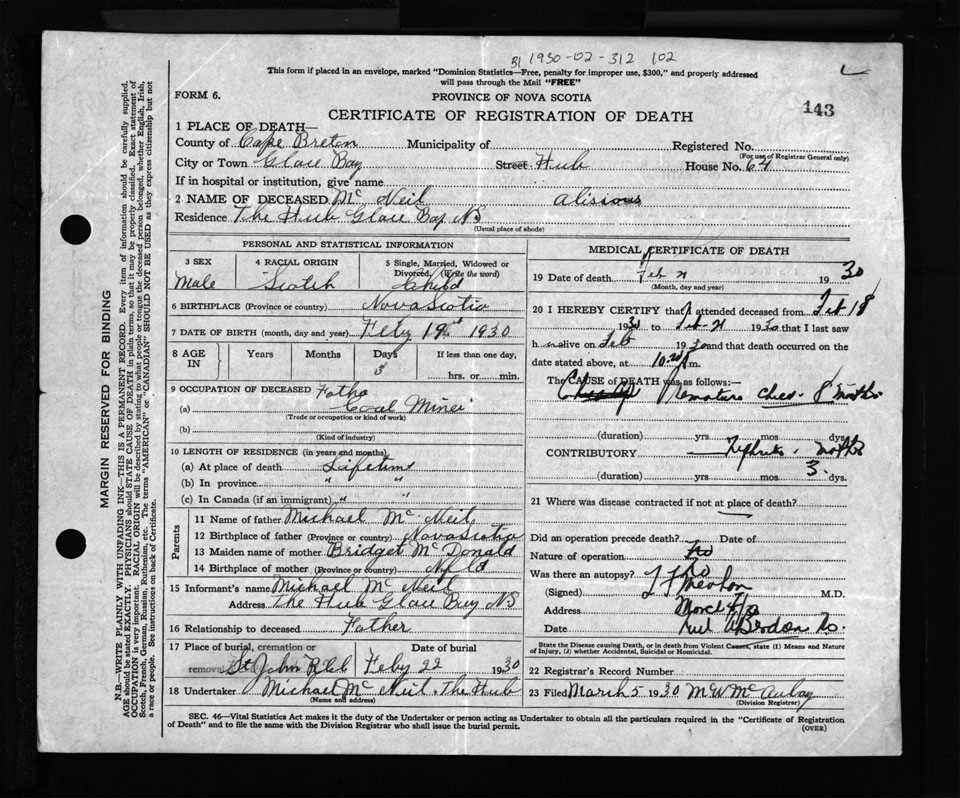 B1 1930-02-312 102
This form if placed in an envelope, marked "Dominion Statistics—Free, penalty for improper use, $300," and properly addressed
will pass through the Mail "FREE"
FORM 6.
PROVINCE OF NOVA SCOTIA
143
CERTIFICATE OF REGISTRATION OF DEATH
1 PLACE OF DEATH—
County of Cape Breton Municipality of Registered No.
(For use of Registrar General only)
City or Town Glace Bay Street Hub House No. 64
If in hospital or institution, give name
2 NAME OF DECEASED Mc Neil Alisious
Residence The Hub Glace Bay NS
(Usual place of abode)
PERSONAL AND STATISTICAL INFORMATION
3 SEX 4 RACIAL ORIGIN 5 Single, Married, Widowed or
Divorced, (Write the word)
Male Scotch Child
6 BIRTHPLACE (Province or country) Nova Scotia
7 DATE OF BIRTH (month, day and year) Feby 19 1930
8 AGE IN Years Months Days If less than one day,
3 hrs. or min.
9 OCCUPATION OF DECEASED Father
(a) Coal Miner
(Trade or occupation or kind of work)
(b)
(Kind of industry)
10 LENGTH OF RESIDENCE (in years and months)
(a) At place of death Lifetime
(b) In province " "
(c) In Canada (if an immigrant) " "
Parents
11 Name of father Michael Mc Neil
12 Birthplace of father (Province or country) Nova Scotia
13 Maiden name of mother Bridget McDonald
14 Birthplace of mother (Province or country) Nfld
15 Informant's name Michael Mc Neil
Address The Hub Glace Bay NS
16 Relationship to deceased Father
17 Place of burial, cremation or Date of burial
removal St John Feby 22 1930
18 Undertaker Michael Mc Neil The Hub
(Name and address)
MEDICAL CERTIFICATE OF DEATH
19 Date of death Feb 21 1930
(Month, day and year)
20 I HEREBY CERTIFY that I attended deceased from Feb 18
1930 to Feb 21 1930 that I last saw
h alive on Feb 1930 and that death occurred on the
date stated above, at 10.20 m.
The CAUSE of DEATH was as follows:
Premature 8 months
(duration) yrs mos dys.
CONTRIBUTORY Nephritis - mother
(duration) yrs mos 3 dys.
21 Where was disease contracted if not at place of death?
Did an operation precede death? Date of
Nature of operation No
Was there an autopsy? No
(Signed) M.D.
Address March 4/30
Date
State the Disease causing Death, or in death from Violent Causes, state (1) Means and Nature
of Injury, (2) whether Accidental, Suicidal or Homicidal.
22 Registrar's Record Number
23 Filed March 5 1930 M W McAulay
(Division Registrar)
SEC. 46—Vital Statistics Act makes it the duty of the Undertaker or person acting as Undertaker to obtain all the particulars required in the "Certificate of Registration
of Death" and to file the same with the Division Registrar who shall issue the burial permit.
(OVER)
MARGIN RESERVED FOR BINDING
N.B.—WRITE PLAINLY WITH UNFADING INK—THIS IS A PERMANENT RECORD. Every item of information should be carefully supplied.
AGE should be stated EXACTLY. PHYSICIANS should STATE CAUSE OF DEATH in plain terms, so that it may be properly classified. Exact statement of
OCCUPATION is very important. RACIAL ORIGIN will be described by stating to what people or tongue the deceased person belonged, whether English, Irish,
Scotch, French, German, Russian, Ruthenian, etc. The terms "AMERICAN" or "CANADIAN" SHOULD NOT BE USED as they express citizenship but not
a race or people. See instructions on back of Certificate.